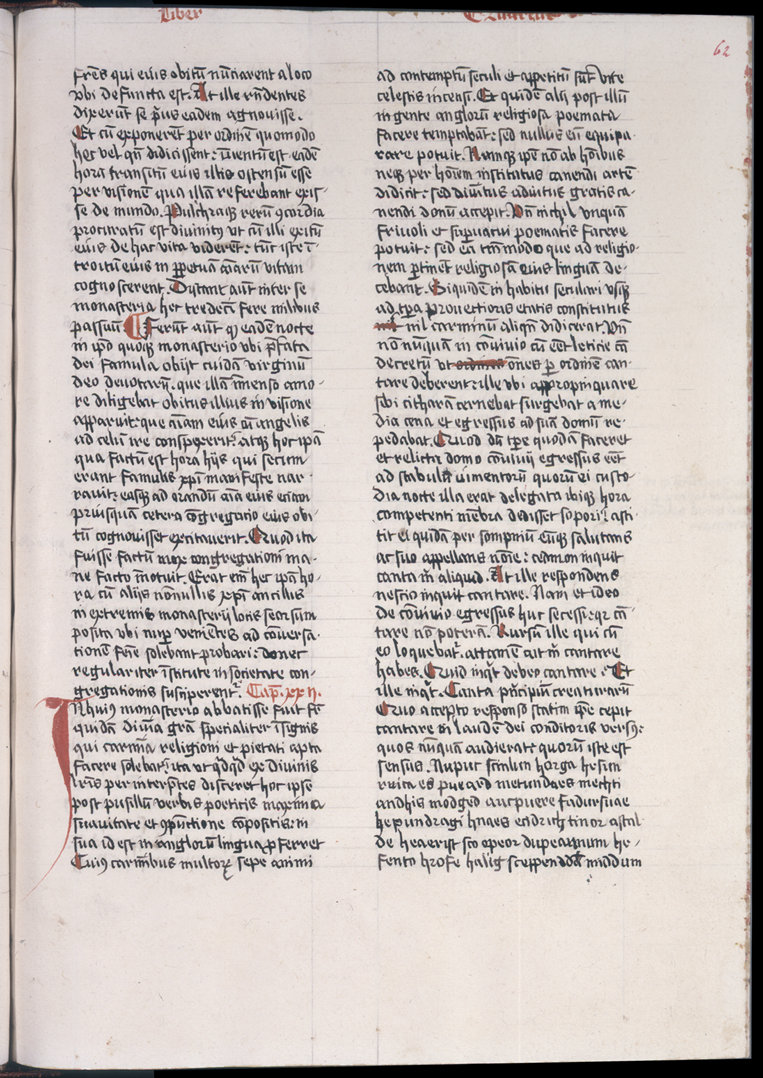 Liber
Quartus
62
frēs qui eius obitū nūciarent a loco
vbi defuncta est. At ille rn̄dentes
dixerūt se p̄us eadem agnouisse.
Et cū exponerent per ordinē quomodo
hec vel qn̄ didicissent: īuentū est eadē
hora transitū eius illis ostensū esse
per visionē qua illā referebant exis-
se de mundo. Pulchraq̧ rerū ꝯcordia
procuratū est diuinitꝰ vt cū illi exitū
eius de hac vita viderēt: tūc iste ī
troitū eius in ꝑpetuā aīarū vitam
cognoscerent. Distant aūt inter se
monasteria hec tredecī fere milibus
passuū ¶ Ferūt aūt ꝙ eadē nocte
in ip̄o quoq̧ monasterio vbi p̄fata
dei famula obijt cuidā virginū
deo deuotarū. que illā īmenso amo-
re diligebat obitus illius in visione
apparuit. que aīam eius cū angelis
ad celū ire conspexerit. atq̧ hoc ip̄a
qua factū est hora hijs qui secum
erant famulis xp̄i manifeste nar-
rauit. easq̧ ad orandū aīa eius etiam
priusquā cetera ꝯgregatio eius obi-
tū cognouisset excitauerit. Quod ita
fuisse factū mox congregationi ma-
ne facto īnotuit. Erat em̄ hec ip̄a ho-
ra cū alijs nōnullis xp̄i ancillis
in extremis monasterij locis seorsum
posita vbi nuꝑ venientes ad conuersa-
tionē femīe solebant probari: donec
regulariter īstitute in societatē con-
gregationis susciperent. Cap. xxij.
In huiꝰ monasterio abbatisse fuit fr̄
quidā diuīa grā specialiter īsignis
qui carmīa religioni et pietati apta
facere solebat. ita vt qd̄qd̄ ex diuinis
lrīs per interp̄tes disceret hoc ipse
post pusillū verbis poeticis maxima
suauitate et ꝯpunctione ꝯpositis. in
sua id est in anglorū lingua ꝓferret
Cuiꝰ carmībus multoꝝ sepe animi
ad contemptū seculi et appetitū sūt vite
celestis incensi. Et quidē alij post illū
in gente anglorū religiosa poemata
facere temptabāt: sed nullus eū equipa-
rare potuit. Namq̧ ip̄e nō ab hoībus
neq̧ per hoīem institutus canendi artē
didicit: sed diuītus adiutus gratis ca-
nendi donū accepit. Vn̄ nichil vnquā
friuoli et supuacui poematis facere
potuit: sed ea tm̄modo que ad religio-
nem ꝑtinēt religiosā eius linguā de-
cebant. Siquidem in habitu seculari vsq̧
ad tꝑa prouectioris etatis constitutꝰ
nil carminū aliqn̄ didicerat. Vn̄
nō nūquā in cōuiuio cū eēt leticie cā
decretū vt oīnes ꝑ ordinē can-
tare deberent: ille vbi appropinquare
sibi citharā cernebat surgebat a me-
dia cena et egressus ad suā domū re-
pedabat. Quod dū tꝑe quodā faceret
et relicta domo cōuiuij egressus eēt
ad stabula iumentorū quorū ei custo-
dia nocte illa erat delegata ibiq̧ hora
competenti mēbra dedisset sopori: asti-
tit ei quidā per sompniū eūq̧ salutans
ac suo appellans noīe: cedmon inquit
canta m̄ aliquid. At ille respondens
nescio inquit cantare. Nam et ideo
de cōuiuio egressus huc secessi. qr cā-
tare nō poterā. Rursū ille qui cū
eo loquebat. attamē ait m̄ cantare
habes. Quid inq̄t debeo cantare. Et
ille inq̄t. Canta pn̄cipiū creaturarū
Quo accepto respōso statim ip̄e cepit
cantare in laudē dei conditoris versꝰ.
quos nūquā audierat: quorū iste est
sensus. Nupue scinlun herga hefun
ruica es pueard metundaes mechti
andhis modged ancpuere fadurfuae
hepundragi hnaes endrich tinor astal-
de heaerist sco opeor dupeaꝛnum he-
fento hrofe halig sceppendda middum